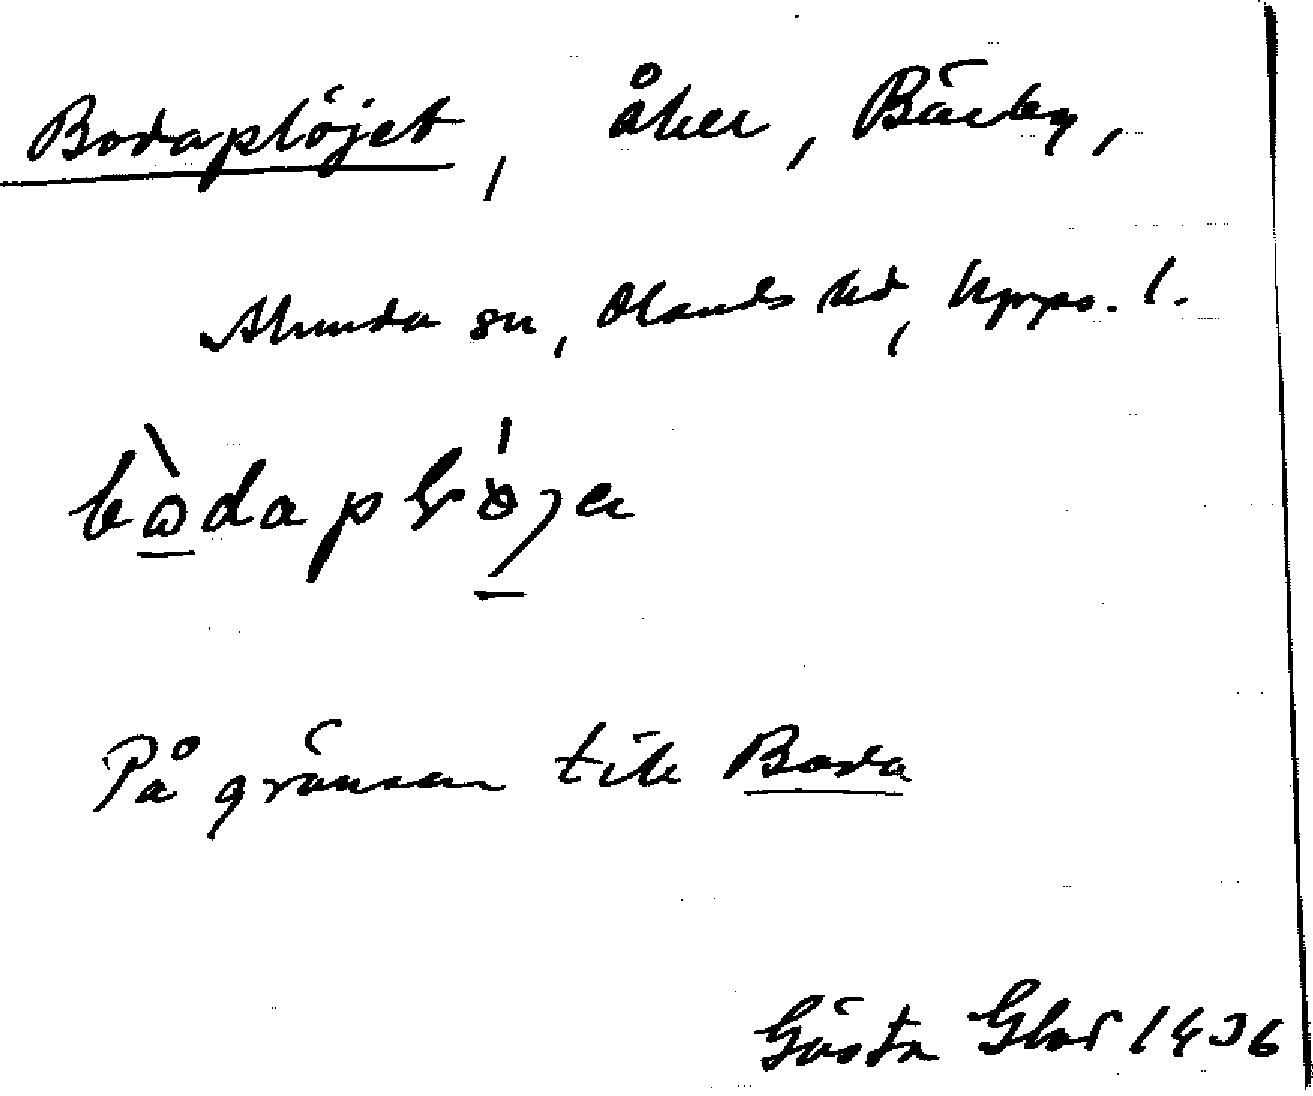 Bodaplöjet, åker, Bärby,
Alunda sn, Olands hd, Upps. l.
På gränsen till Boda
Gösta Glad 1936